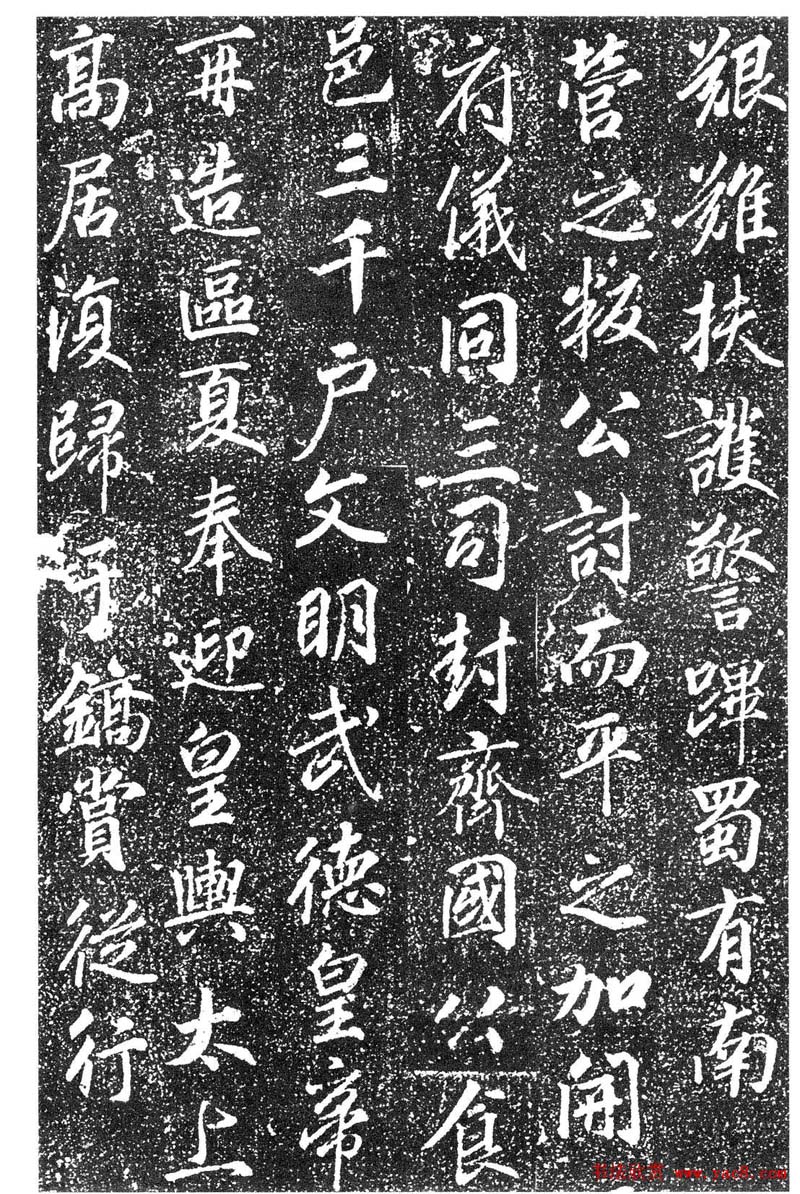 艱難扶護警蹕蜀有南
營之叛公討而平之加開
府儀同三司封齊國公食
邑三千户文明武德皇帝
再造區夏奉迎皇輿太上
高居復歸于鎬賞從行
书法欣赏 www.yac8.com